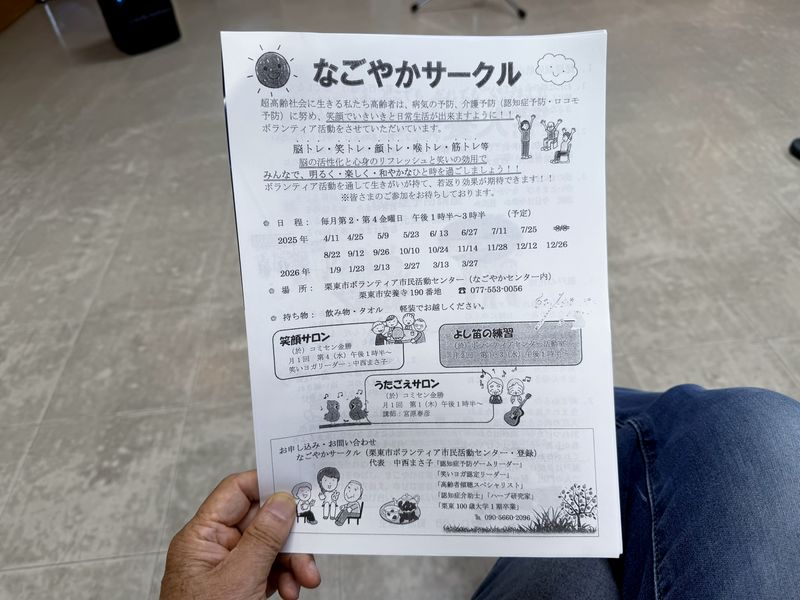 なごやかサークル
超高齢社会に生きる私たち高齢者は、病気の予防、介護予防（認知症予防・ロコモ
予防）に努め、笑顔でいきいきと日常生活が出来ますように！！
ボランティア活動をさせていただいています。
脳トレ・笑トレ・顔トレ・喉トレ・筋トレ等
脳の活性化と心身のリフレッシュと笑いの効用で
みんなで、明るく・楽しく・和やかなひと時を過ごしましょう！！
ボランティア活動を通して生きがいが持て、若返り効果が期待できます！！
※皆さまのご参加をお待ちしております。
日 程： 毎月第2・第4金曜日 午後1時半～3時半 （予定）
2025年 4/11 4/25 5/9 5/23 6/13 6/27 7/11 7/25 8/8
8/22 9/12 9/26 10/10 10/24 11/14 11/28 12/12 12/26
2026年 1/9 1/23 2/13 2/27 3/13 3/27
場 所： 栗東市ボランティア市民活動センター（なごやかセンター内）
栗東市安養寺190番地 ☎ 077-553-0056
持ち物： 飲み物・タオル 軽装でお越しください。
笑顔サロン
（於）コミセン金勝
月1回 第4（水）午後1時半～
笑いヨガリーダー：中西まさ子
よし笛の練習
うたごえサロン
（於）コミセン金勝
月1回 第1（木）午後1時半～
講師：宮原泰彦
お申し込み・お問い合わせ
なごやかサークル（栗東市ボランティア市民活動センター・登録）
代表 中西まさ子「認知症予防ゲームリーダー」
「笑いヨガ認定リーダー」
「高齢者傾聴スペシャリスト」
「認知症介助士」「ハーブ研究家」
「栗東100歳大学1期卒業」
℡ 090-5660-2096